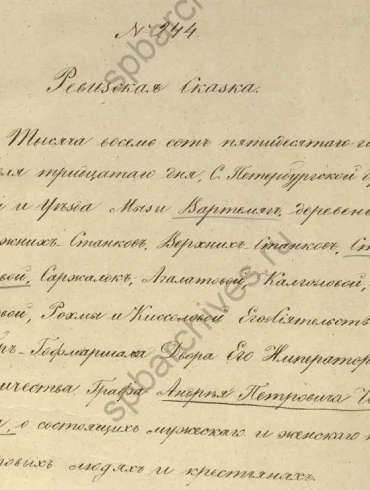 № 244.
Ревизская Сказка.
Тысяча восемь сотъ пятидесятаго го
ля тридцатаго дня, С. Петербургской Гу
и и Уѣзда Мызы Вартемягъ, деревень
жнихъ-Станковъ, Верхнихъ-Станковъ, Ст
вой, Саржалокъ, Агалатовой, Калголовой,
вой, Рохмы и Кисселовой Его Сіятельств
ръ-Гофмаршала Двора Его Император
ичества Графа Андрея Петровича Шу
а, о состоящихъ мужескаго и женскаго п
ровыхъ людяхъ и крестьянахъ.
spbarchives.ru